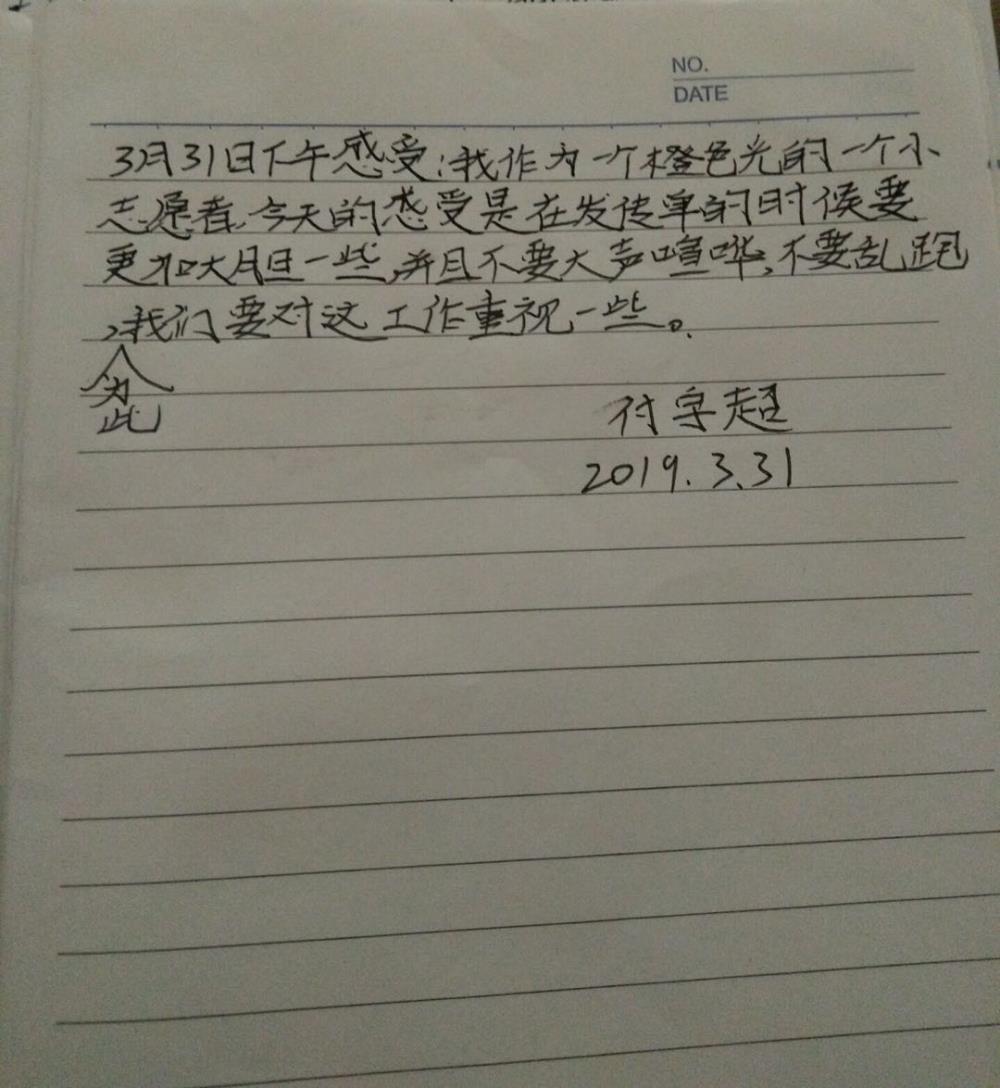 NO.
DATE
3月31日下午感受:我作为一个橙色光的一个小
志愿者,今天的感受是在发传单的时候要
更加大胆一些,并且不要大声喧哗,不要乱跑
,我们要对这工作重视一些。
为此
付字超
2019.3.31